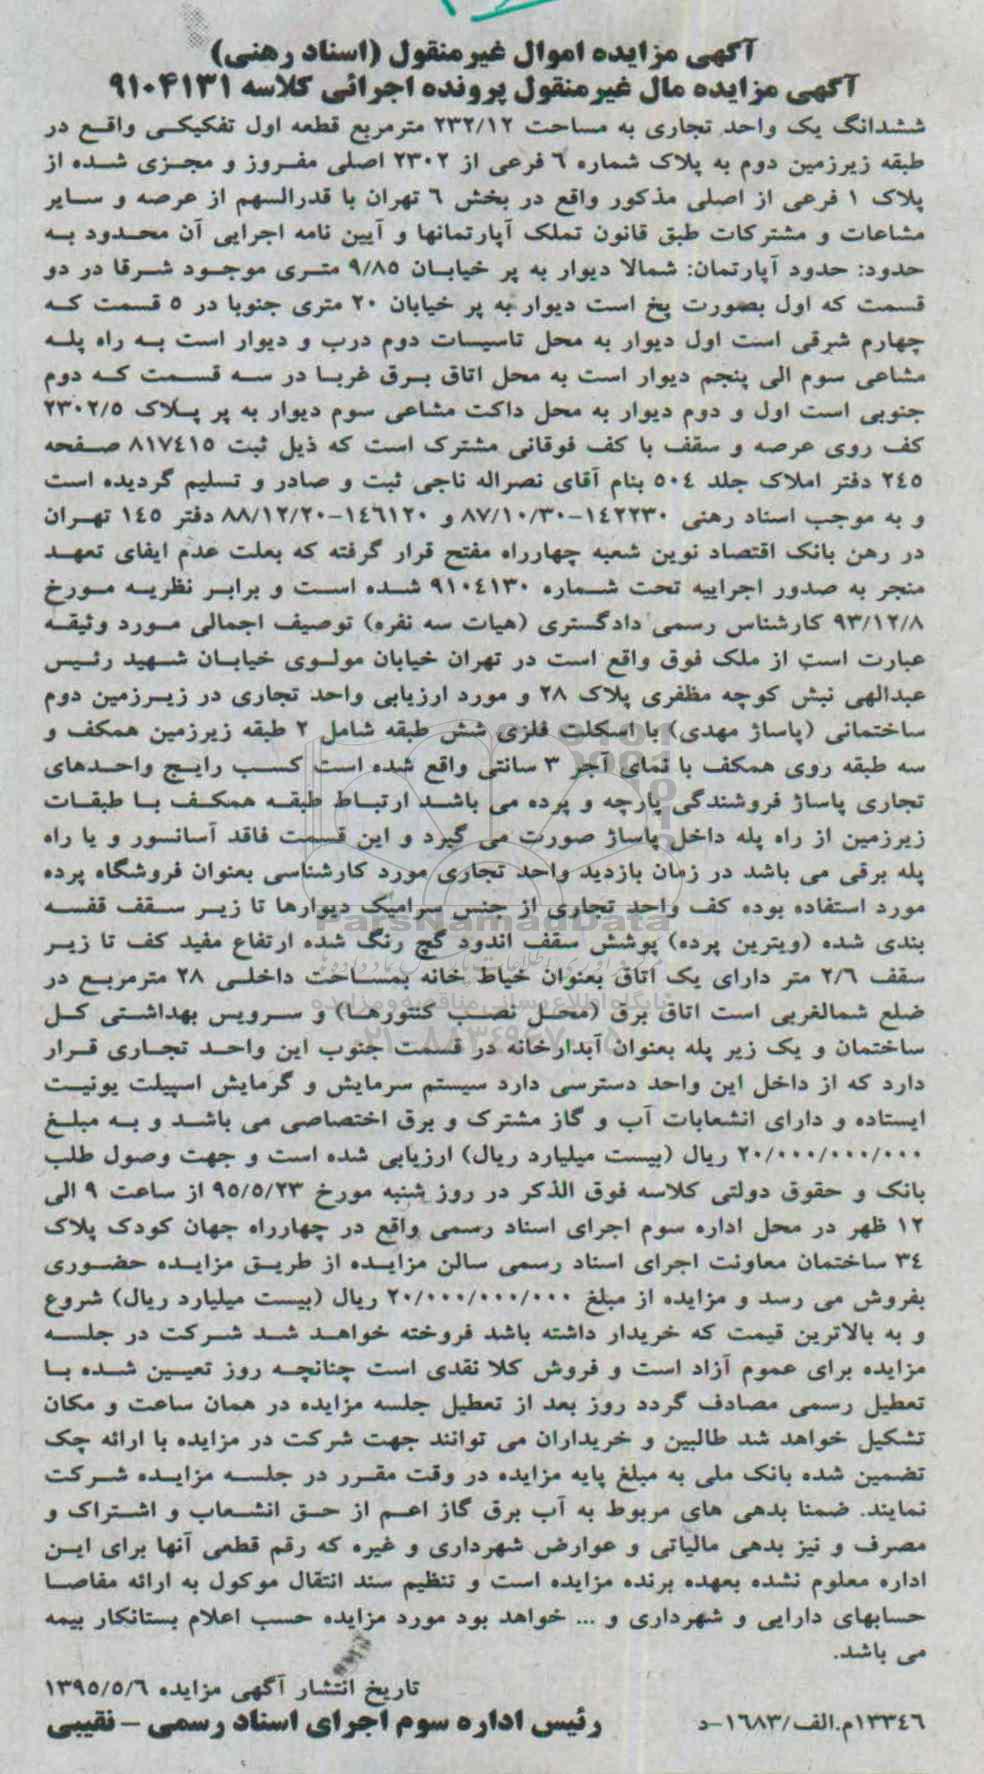 آگهی مزایده اموال غیرمنقول (اسناد رهنی)
آگهی مزایده مال غیرمنقول پرونده اجرائی کلاسه ۹۱۰۴۱۳۱
ششدانگ یک واحد تجاری به مساحت ۲۳۲/۱۲ مترمربع قطعه اول تفکیکی واقع در
طبقه زیرزمین دوم به پلاک شماره ۶ فرعی از ۲۳۰۲ اصلی مفروز و مجزی شده از
پلاک ۱ فرعی از اصلی مذکور واقع در بخش ۶ تهران با قدرالسهم از عرصه و سایر
مشاعات و مشترکات طبق قانون تملک آپارتمانها و آیین نامه اجرایی آن محدود به
حدود: حدود آپارتمان: شمالا دیوار به پر خیابان ۹/۸۵ متری موجود شرقا در دو
قسمت که اول بصورت پخ است دیوار به پر خیابان ۲۰ متری جنوبا در ۵ قسمت که
چهارم شرقی است اول دیوار به محل تاسیسات دوم درب و دیوار است به راه پله
مشاعی سوم الی پنجم دیوار است به محل اتاق برق غربا در سه قسمت که دوم
جنوبی است اول و دوم دیوار به محل داکت مشاعی سوم دیوار به پر پلاک ۲۳۰۲/۵
کف روی عرصه و سقف با کف فوقانی مشترک است که ذیل ثبت ۸۱۷۴۱۵ صفحه
۲۴۵ دفتر املاک جلد ۵۰۴ بنام آقای نصراله ناجی ثبت و صادر و تسلیم گردیده است
و به موجب اسناد رهنی ۱۴۲۲۳۰-۸۷/۱۰/۳۰ و ۱۴۶۱۲۰-۸۸/۱۲/۲۰ دفتر ۱۴۵ تهران
در رهن بانک اقتصاد نوین شعبه چهارراه مفتح قرار گرفته که بعلت عدم ایفای تعهد
منجر به صدور اجراییه تحت شماره ۹۱۰۴۱۳۰ شده است و برابر نظریه مورخ
۹۳/۱۲/۸ کارشناس رسمی دادگستری (هیات سه نفره) توصیف اجمالی مورد وثیقه
عبارت است از ملک فوق واقع است در تهران خیابان مولوی خیابان شهید رئیس
عبدالهی نبش کوچه مظفری پلاک ۲۸ و مورد ارزیابی واحد تجاری در زیرزمین دوم
ساختمانی (پاساژ مهدی) با اسکلت فلزی شش طبقه شامل ۲ طبقه زیرزمین همکف و
سه طبقه روی همکف با نمای آجر ۳ سانتی واقع شده است کسب رایج واحدهای
تجاری پاساژ فروشندگی پارچه و پرده می باشد ارتباط طبقه همکف با طبقات
زیرزمین از راه پله داخل پاساژ صورت می گیرد و این قسمت فاقد آسانسور و یا راه
پله برقی می باشد در زمان بازدید واحد تجاری مورد کارشناسی بعنوان فروشگاه پرده
مورد استفاده بوده کف واحد تجاری از جنس سرامیک دیوارها تا زیر سقف قفسه
بندی شده (ویترین پرده) پوشش سقف اندود گچ رنگ شده ارتفاع مفید کف تا زیر
سقف ۲/۶ متر دارای یک اتاق بعنوان خیاط خانه بمساحت داخلی ۲۸ مترمربع در
ضلع شمالغربی است اتاق برق (محل نصب کنتورها) و سرویس بهداشتی کل
ساختمان و یک زیر پله بعنوان آبدارخانه در قسمت جنوب این واحد تجاری قرار
دارد که از داخل این واحد دسترسی دارد سیستم سرمایش و گرمایش اسپیلت یونیت
ایستاده و دارای انشعابات آب و گاز مشترک و برق اختصاصی می باشد و به مبلغ
۲۰/۰۰۰/۰۰۰/۰۰۰ ریال (بیست میلیارد ریال) ارزیابی شده است و جهت وصول طلب
بانک و حقوق دولتی کلاسه فوق الذکر در روز شنبه مورخ ۹۵/۵/۲۳ از ساعت ۹ الی
۱۲ ظهر در محل اداره سوم اجرای اسناد رسمی واقع در چهارراه جهان کودک پلاک
۳۴ ساختمان معاونت اجرای اسناد رسمی سالن مزایده از طریق مزایده حضوری
بفروش می رسد و مزایده از مبلغ ۲۰/۰۰۰/۰۰۰/۰۰۰ ریال (بیست میلیارد ریال) شروع
و به بالاترین قیمت که خریدار داشته باشد فروخته خواهد شد شرکت در جلسه
مزایده برای عموم آزاد است و فروش کلا نقدی است چنانچه روز تعیین شده با
تعطیل رسمی مصادف گردد روز بعد از تعطیل جلسه مزایده در همان ساعت و مکان
تشکیل خواهد شد طالبین و خریداران می توانند جهت شرکت در مزایده با ارائه چک
تضمین شده بانک ملی به مبلغ پایه مزایده در وقت مقرر در جلسه مزایده شرکت
نمایند. ضمنا بدهی های مربوط به آب برق گاز اعم از حق انشعاب و اشتراک و
مصرف و نیز بدهی مالیاتی و عوارض شهرداری و غیره که رقم قطعی آنها برای این
اداره معلوم نشده بعهده برنده مزایده است و تنظیم سند انتقال موکول به ارائه مفاصا
حسابهای دارایی و شهرداری و ... خواهد بود مورد مزایده حسب اعلام بستانکار بیمه
می باشد.
تاریخ انتشار آگهی مزایده ۱۳۹۵/۵/۶
۱۳۳۴۶م.الف/۱۶۸۳-د
رئیس اداره سوم اجرای اسناد رسمی - نقیبی
ParsNamadData
پایگاه اطلاع رسانی مناقصه و مزایده